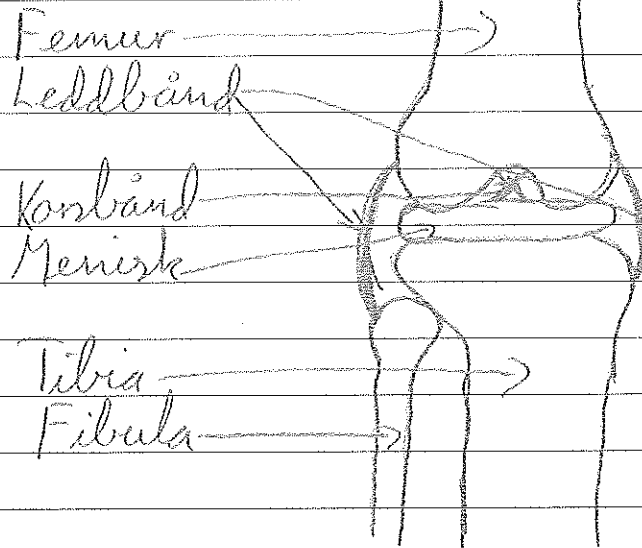 Femur
Leddbånd
Korsbånd
Menisk
Tibia
Fibula